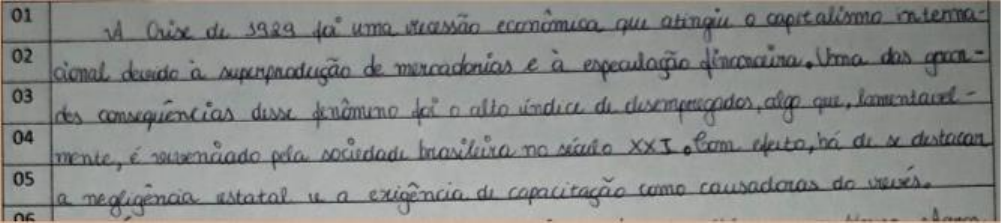 01 A Crise de 1929 foi uma recessão econômica que atingiu o capitalismo interna-
02 cional devido à superprodução de mercadorias e à especulação financeira. Uma das gran-
03 des consequências desse fenômeno foi o alto índice de desempregados, algo que, lamentavel-
04 mente, é vivenciado pela sociedade brasileira no século XXI. Com efeito, há de se destacar
05 a negligência estatal e a exigência de capacitação como causadoras do revés.
06